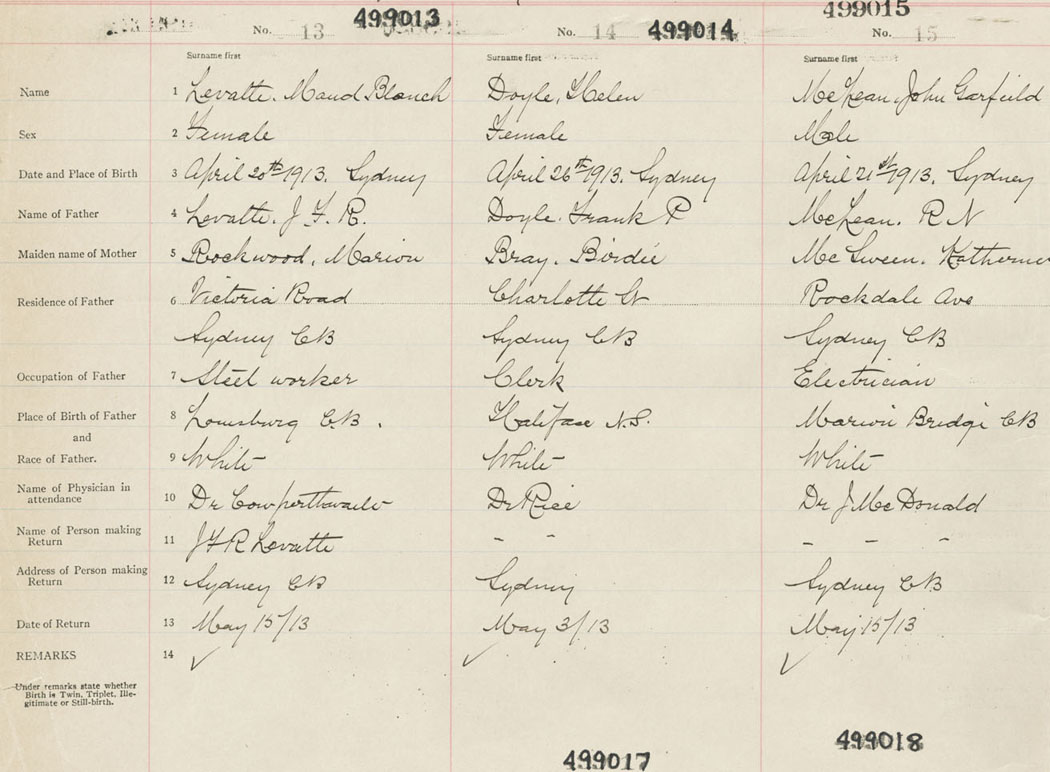 499013 499014 499015
No. 13 No. 14 No. 15
Surname first Surname first Surname first
Name 1 Levatte, Maud Blanch Doyle, Helen McLean, John Garfield
Sex 2 Female Female Male
Date and Place of Birth 3 April 20th 1913, Sydney April 26th 1913, Sydney April 21st 1913, Sydney
Name of Father 4 Levatte, J. F. R. Doyle, Frank P McLean, R N
Maiden name of Mother 5 Rockwood, Marion Bray, Birdie McSween,
Residence of Father 6 Victoria Road Charlotte St Rockdale Ave
Sydney CB Sydney CB Sydney CB
Occupation of Father 7 Steel worker Clerk Electrician
Place of Birth of Father 8 Louisburg C.B. Halifax N.S. Marion Bridge CB
and
Race of Father. 9 White White White
Name of Physician in
attendance 10 Dr Cowperthwaite Dr Rice Dr J McDonald
Name of Person making
Return 11 J F R Levatte - - - - -
Address of Person making
Return 12 Sydney CB Sydney Sydney CB
Date of Return 13 May 15/13 May 3/13 May 15/13
REMARKS 14 ✓ ✓ ✓
Under remarks state whether
Birth is Twin, Triplet, Ille-
gitimate or Still-birth.
499017 499018